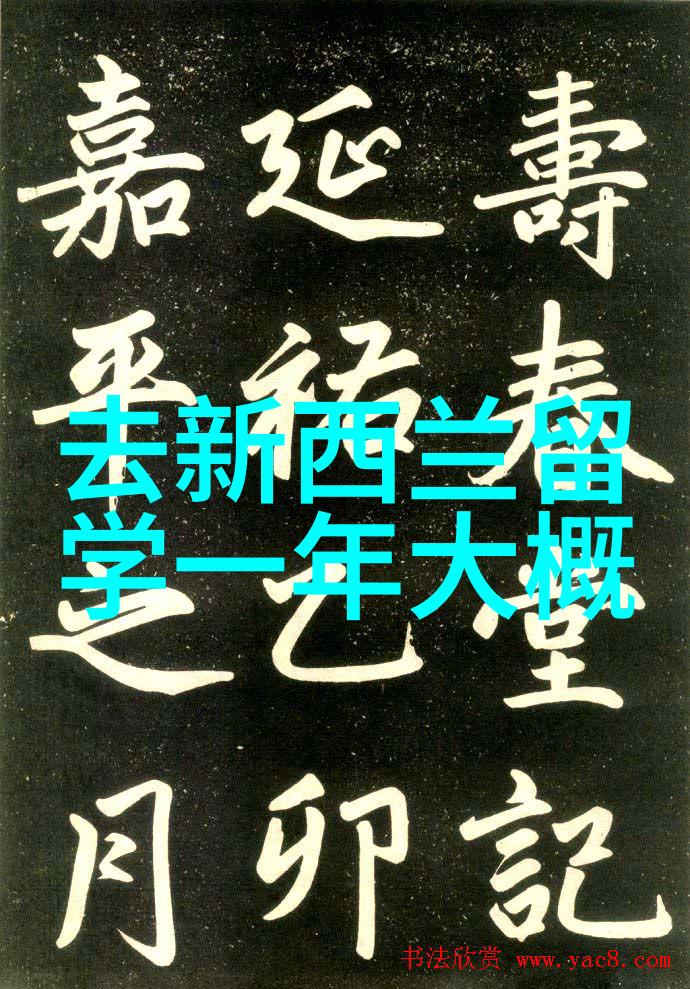 壽春堂記
延祐乙卯
嘉平之月
去新西兰留
学一年大概
书法欣赏 www.yac8.com